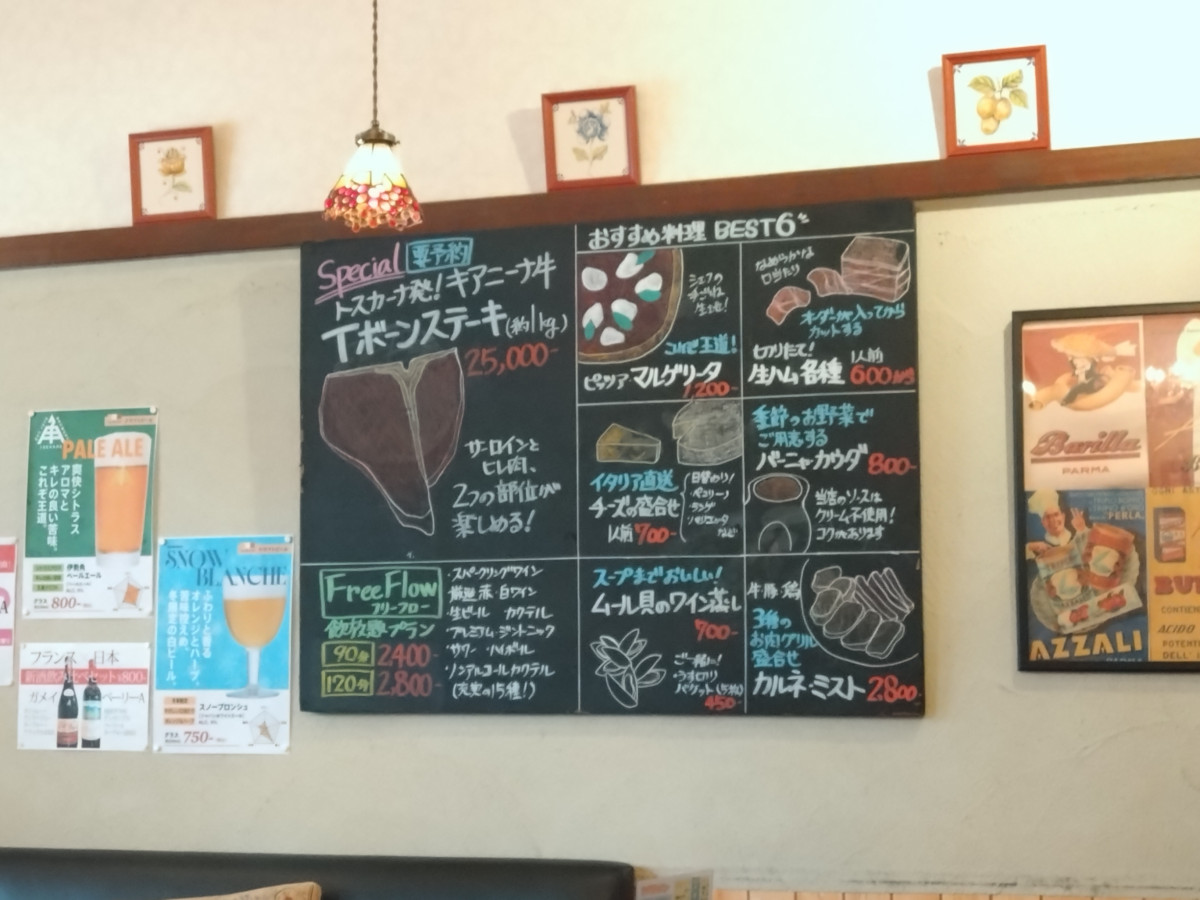 Special 要予約
トスカーナ発!キアニーナ牛
Tボーンステーキ(約1kg)
25,000-
サーロインと
ヒレ肉、
2つの部位が
楽しめる!
Free Flow
フリーフロー
飲放題プラン
90分 2400-
120分 2,800-
・スパークリングワイン
・厳選 赤・白ワイン
・生ビール カクテル
・プレミアム・ジントニック
・サワー ・ハイボール
・ノンアルコールカクテル
(充実の15種!)
おすすめ料理 BEST6
シェフの
手ごね
生地!
これぞ王道!
ピッツァ マルゲリータ
1200-
なめらかな
口当たり
オーダーが入ってから
カットする
切りたて!
生ハム各種 1人前 600から
イタリア直送
チーズの盛合せ
1人前 700-
日替わり!
ペコリーノ
タレッジ
ゴルゴンゾーラ
など
季節のお野菜で
ご用意する
バーニャカウダ 800-
当店のソースは
クリーム不使用!
コクがあります
スープまでおいしい!
ムール貝のワイン蒸し
700-
ご一緒に!
・うす切り
バゲット(5枚)
450-
牛・豚・鶏
3種の
お肉グリル
盛合せ
カルネ・ミスト 2800-
PALE ALE
爽快シトラス
アロマと
キレの良い苦味。
これぞ王道。
伊勢角
ペールエール
グラス 800-
SNOW
BLANCHE
ふわりと香る
オレンジとハーブ。
苦味控えめ、
冬限定の白ビール。
スノーブロンシェ
グラス 750-
フランス 日本
新酒飲み比べセット¥800-
ガメイ
ベーリーA
Barilla
PARMA
PERLA
AZZALI
BU
CONTIEN
ACIDO
POTENT
DELL'